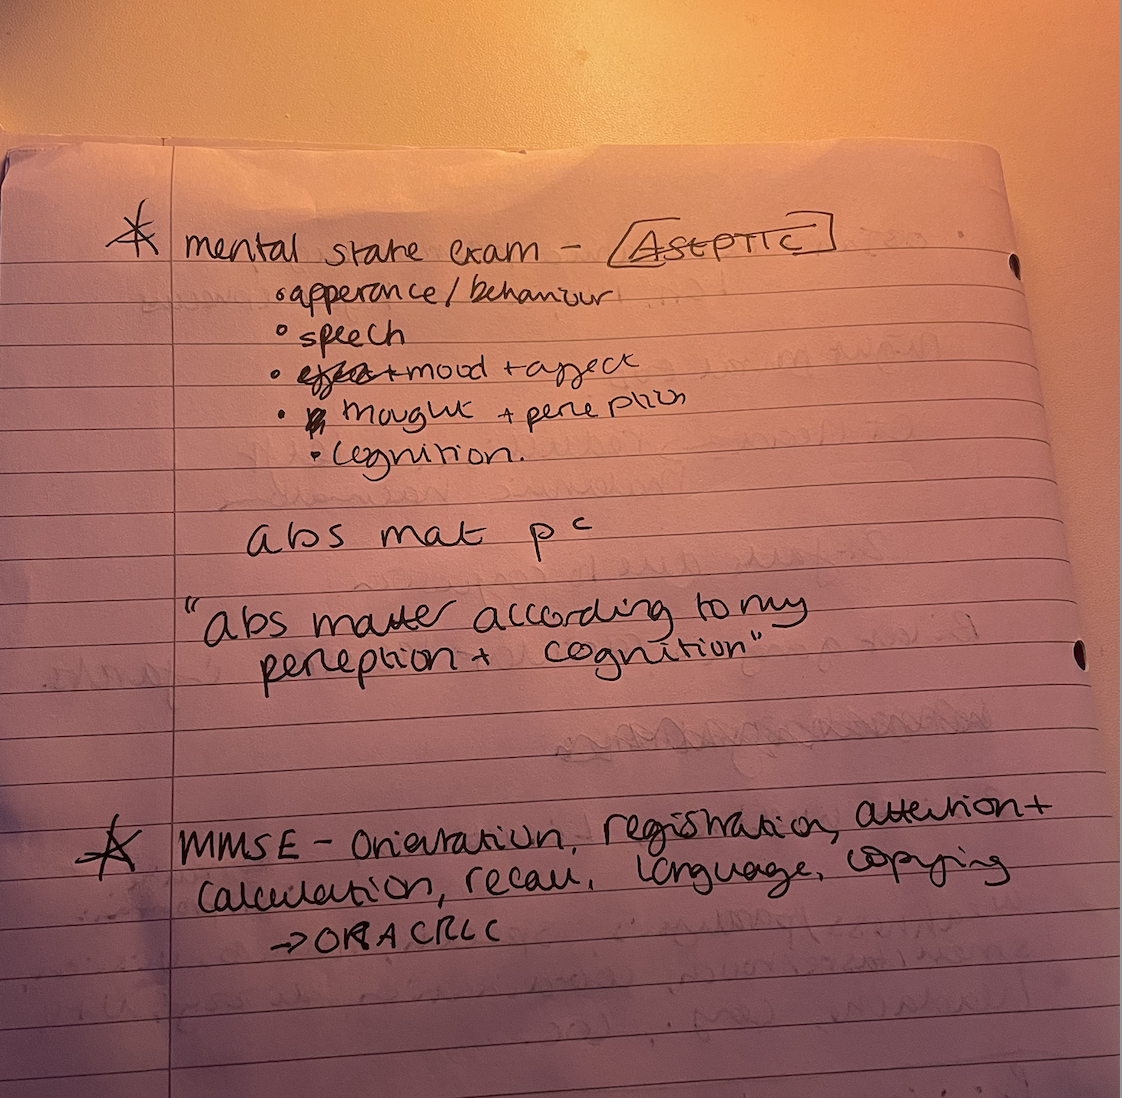 * mental state exam - [ASEPTIC]
• apperance / behaviour
• speech
• mood + affect
• thought + perception
• cognition.
abs mat pc
"abs matter according to my
perception + cognition"
* MMSE - Orientation, registration, attention +
calculation, recall, language, copying
→ ORACRLC